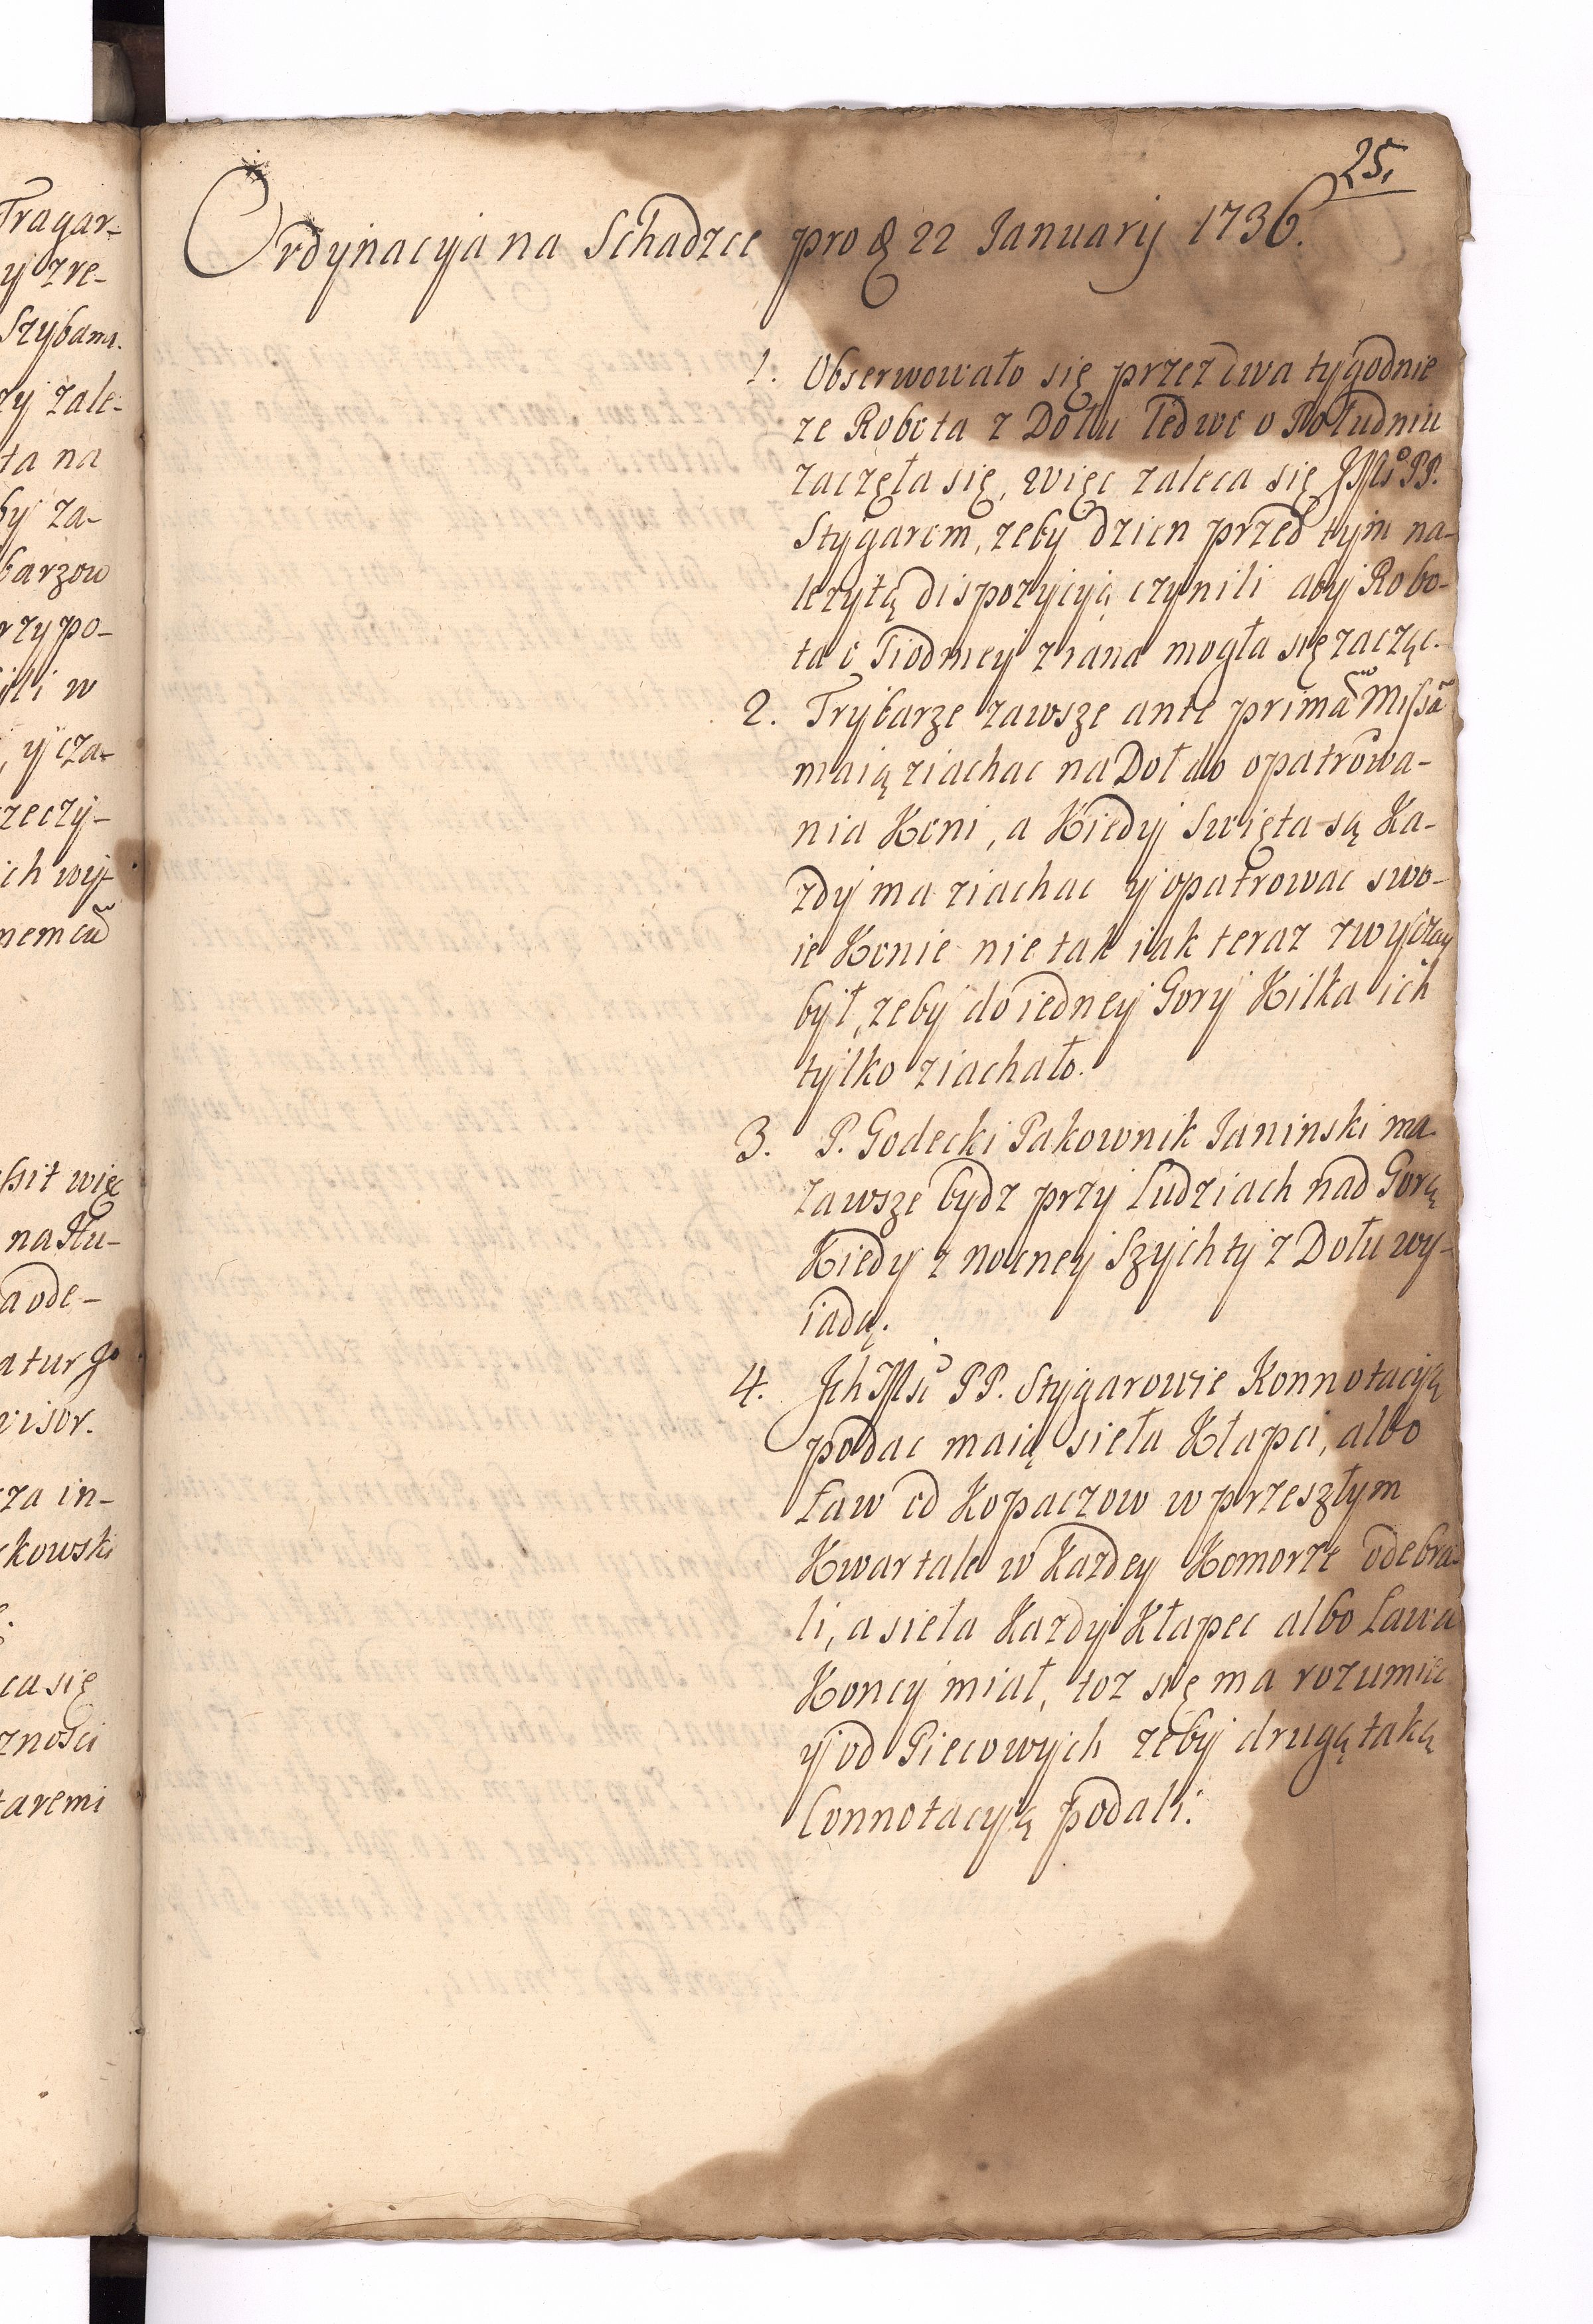 Tragar-
y zre-
Szybami.
zy zale-
ta na
by za-
barzow
rzypo-
ili w
, y cza-
rzeczy-
ich wy-
nemcũ
pit więc
na Stu-
a ode-
atur go
visor.
za in-
kowski
ca się
zności
taremi
25.
Ordynacyja na Schadzce pro d 22 Januarij 1736.
1. Obserwowało się przez dwa tygodnie
ze Robota z Dołu ledwo o Południu
zaczęła się, więc zaleca się JMci PP.
Stygarom, zeby dzien przed tym na-
lezytą dispozycyą czynili aby Robo-
ta o Siodmey zrana mogła się zacząc.
2. Trybarze zawsze ante primã Missã
maią ziachac na Doł do opatrowa-
nia Koni, a Kiedy Swięta są Ka-
zdy ma ziachac y opatrowac swo-
ie Konie nie tak iak teraz zwyczay
był, zeby do iedney Gory Kilka ich
tylko ziachało.
3. P. Godecki Pakownik Janinski ma
zawsze bydz przy Ludziach nad Gorą
Kiedy z nocney Szychty z Dołu wy-
iadą.
4. Jch Mci PP. Stygarowie Konnotacyą
podac maią sieła Kłapci, albo
Ław od Kopaczow w przeszłym
Kwartale w Kazdey Komorze odebra-
li, a sieła Kazdy Kłapec albo Ława
Koncy miał, toz się ma rozumiec
y od Piecowych zeby drugą taką
Connotacyą podali.